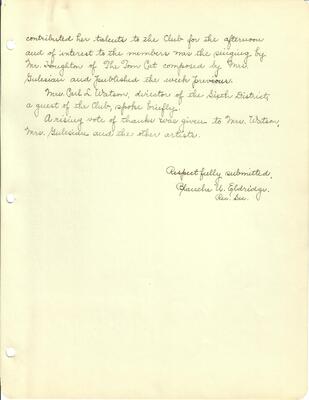 contributed her talents to the Club for the afternoon
and of interest to the members was the singing by
Mr. Houghton of The Tom Cat composed by Mrs.
Gulesian and published the week previous.
Mrs. Carl L. Watson, director of the Sixth District,
a guest of the Club, spoke briefly.
A rising vote of thanks was given to Mrs. Watson,
Mrs. Gulesian and the other artists.
Respectfully submitted,
Blanche U. Eldridge.
Rec. Sec.